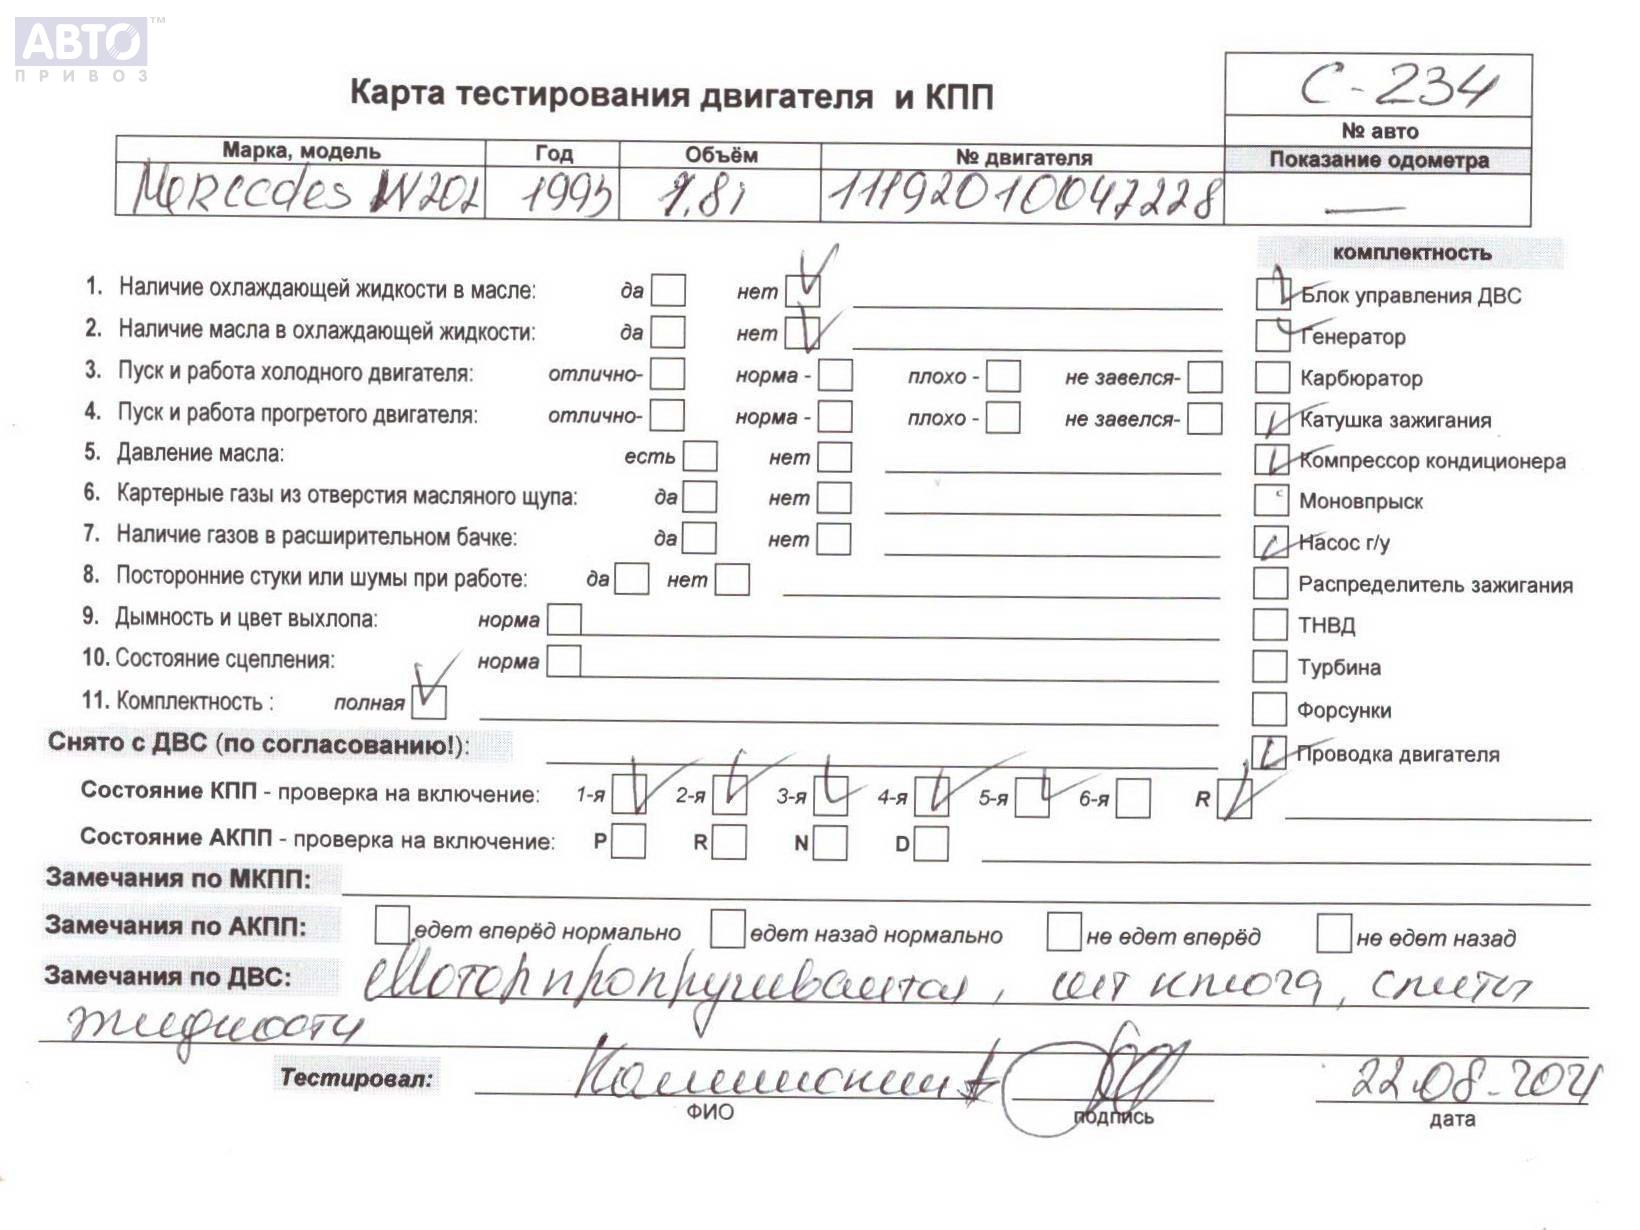 АВТО™
ПРИВОЗ
Карта тестирования двигателя и КПП
С-234
№ авто
Марка, модель Год Объём № двигателя Показание одометра
Mercedes W202 1993 1,8i 11192010047228 —
комплектность
1. Наличие охлаждающей жидкости в масле: да нет Блок управления ДВС
2. Наличие масла в охлаждающей жидкости: да нет Генератор
3. Пуск и работа холодного двигателя: отлично- норма - плохо - не завелся- Карбюратор
4. Пуск и работа прогретого двигателя: отлично- норма - плохо - не завелся- Катушка зажигания
5. Давление масла: есть нет Компрессор кондиционера
6. Картерные газы из отверстия масляного щупа: да нет Моновпрыск
7. Наличие газов в расширительном бачке: да нет Насос г/у
8. Посторонние стуки или шумы при работе: да нет Распределитель зажигания
9. Дымность и цвет выхлопа: норма ТНВД
10. Состояние сцепления: норма Турбина
11. Комплектность : полная Форсунки
Снято с ДВС (по согласованию!): Проводка двигателя
Состояние КПП - проверка на включение: 1-я 2-я 3-я 4-я 5-я 6-я R
Состояние АКПП - проверка на включение: P R N D
Замечания по МКПП:
Замечания по АКПП: едет вперёд нормально едет назад нормально не едет вперёд не едет назад
Замечания по ДВС: Мотор прокручивается, нет ключа, слиты
жидкости
Тестировал: 22.08.2021
ФИО подпись дата